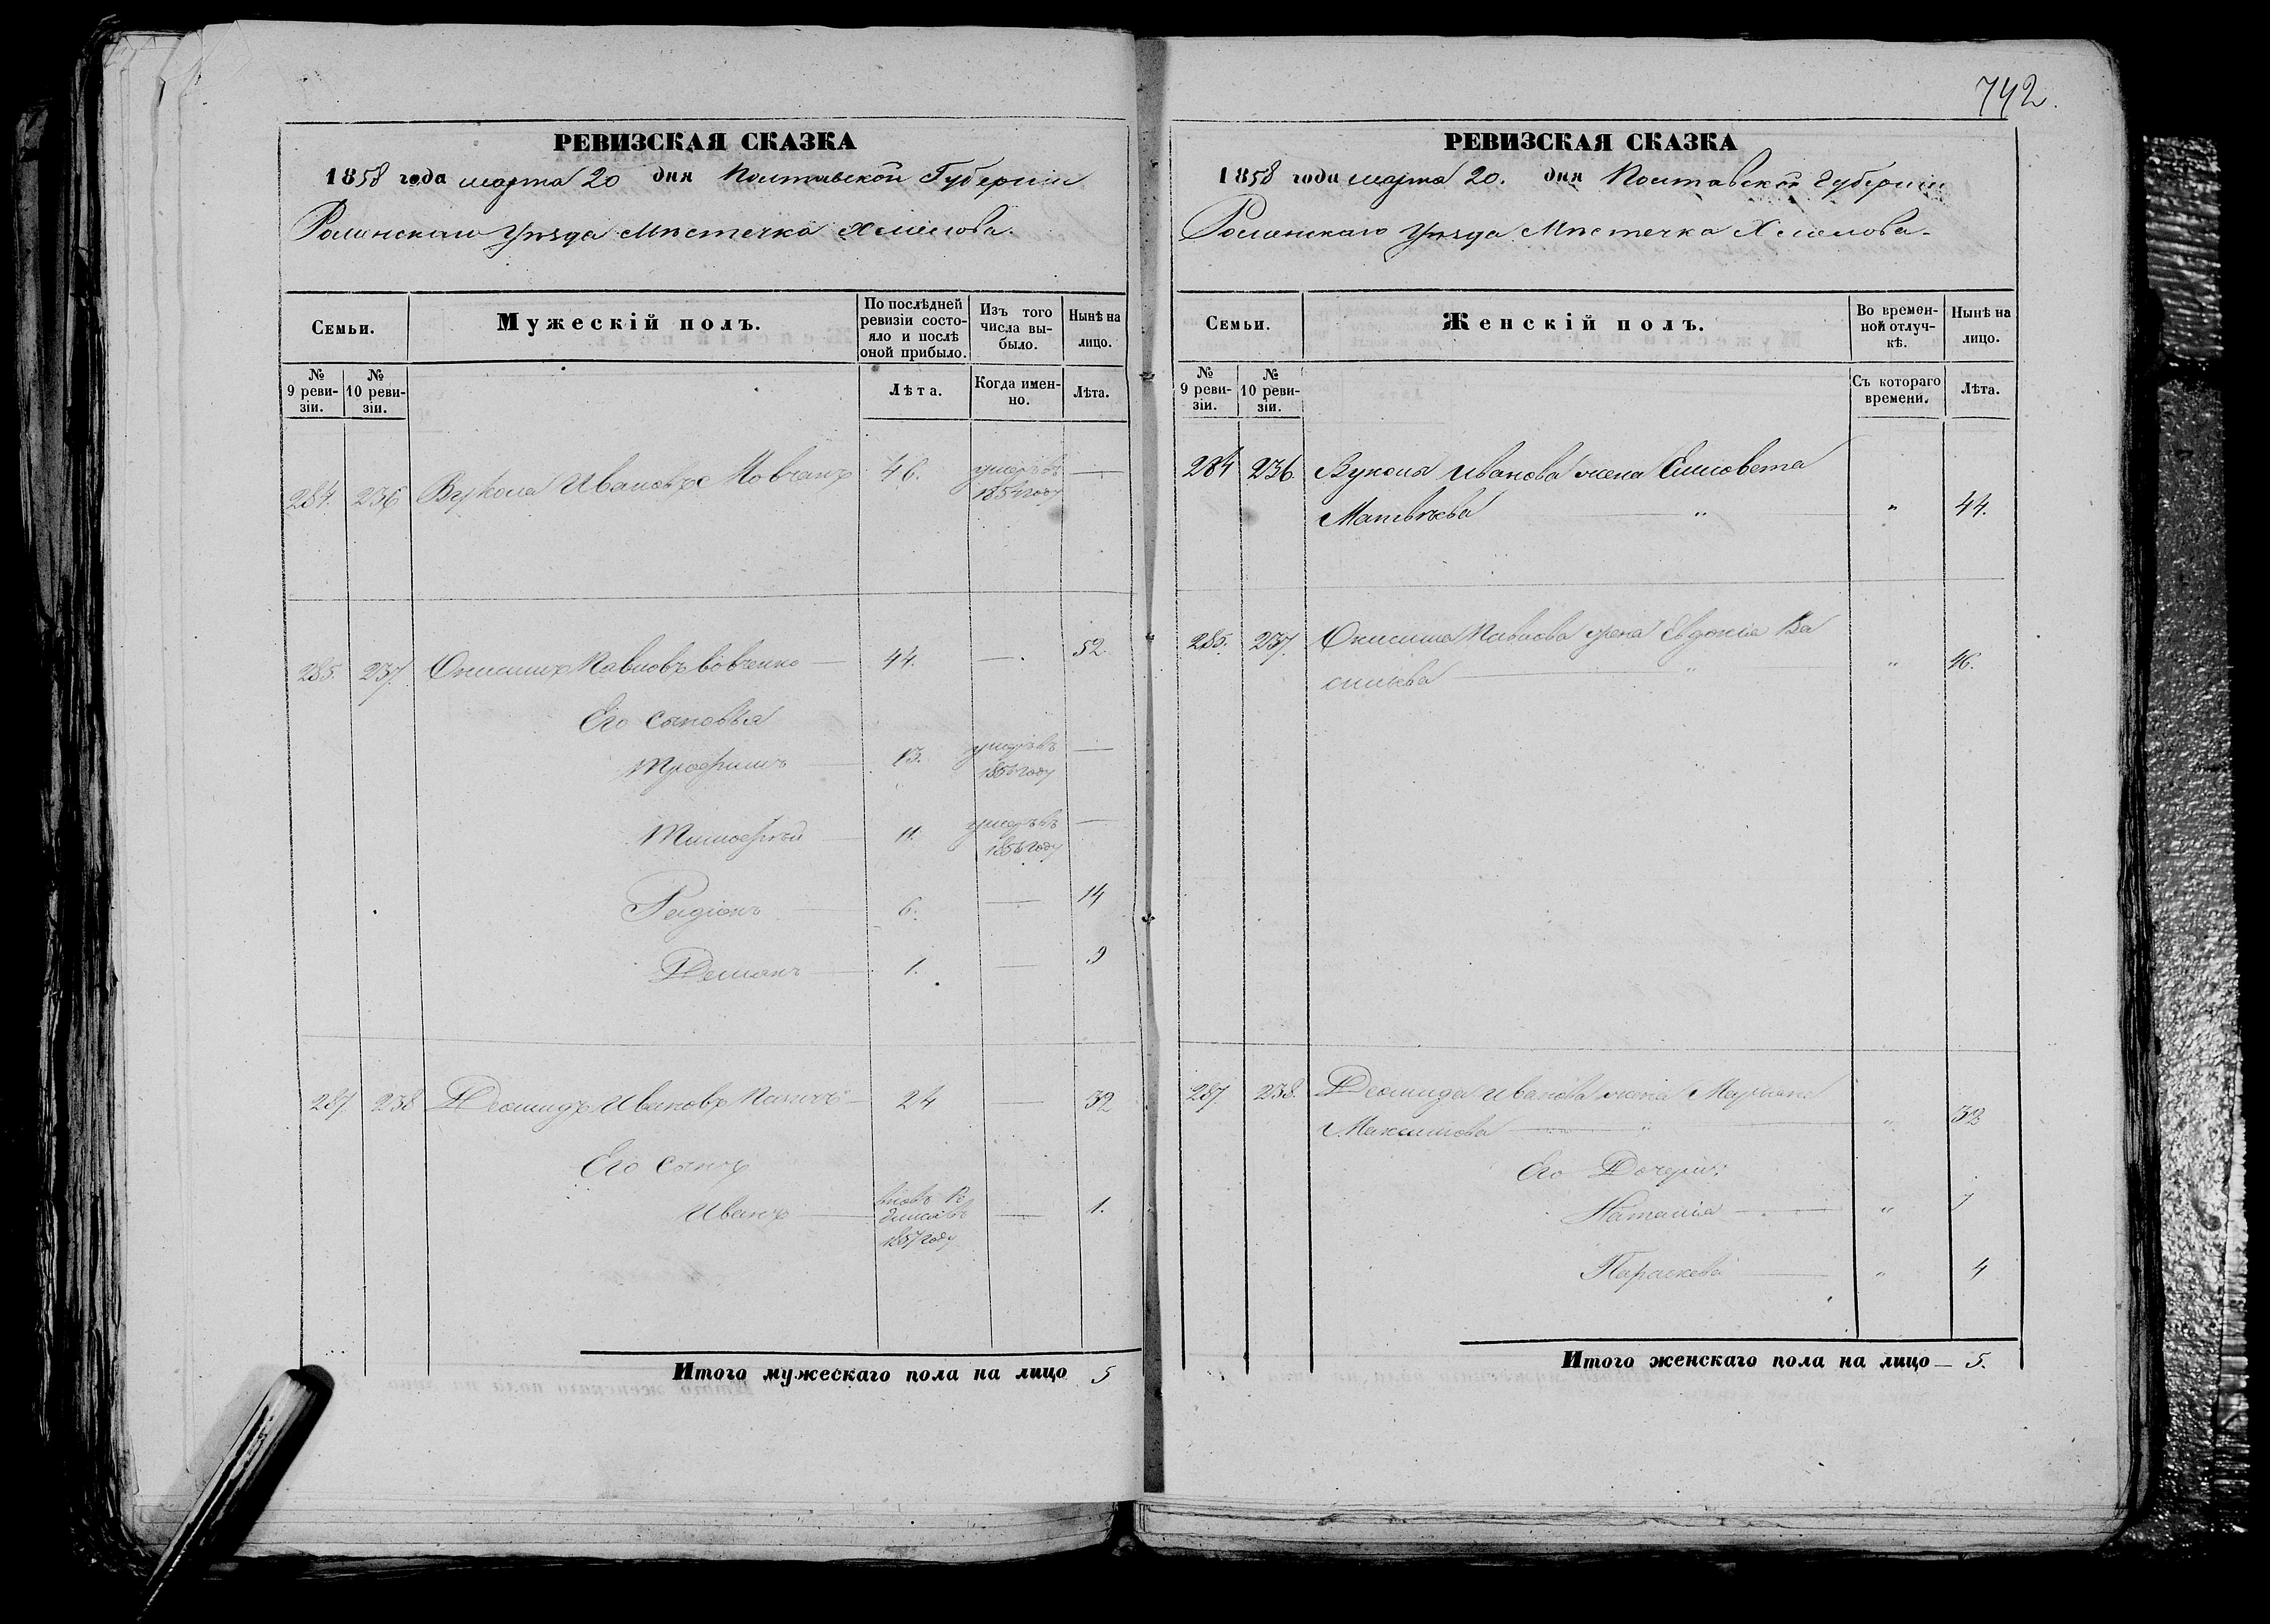 742.
РЕВИЗСКАЯ СКАЗКА
1858 года марта 20 дня Полтавской Губерніи
Роменскаго Уѣзда Мѣстечка Хмелова.
Семьи.
Мужескій полъ.
По послѣдней ревизіи состояло и послѣ оной прибыло.
Изъ того числа выбыло.
Нынѣ на лицо.
№ 9 ревизіи.
№ 10 ревизіи.
Лѣта.
Когда именно.
Лѣта.
284. 236 Вукола Ивановъ Мовчанъ 46. умеръ въ 1854 году —
285. 237. Онисимъ Павловъ Вовченко — 44. — 52
Его сыновья
Трофимъ — 13. умеръ въ 1856 году —
Тимофѣй — 11. умеръ въ 1856 году —
Радіонъ — 6. — 14
Демянъ — 1. — 9
287. 238 Деомидъ Ивановъ — 24 — 32
Его сынъ
Иванъ — вновь родился въ 1857 году — 1.
Итого мужескаго пола на лицо 5
РЕВИЗСКАЯ СКАЗКА
1858 года марта 20. дня Полтавской Губерніи
Роменскаго Уѣзда Мѣстечка Хмелова.
Семьи.
Женскій полъ.
Во временной отлучкѣ.
Нынѣ на лицо.
№ 9 ревизіи.
№ 10 ревизіи.
Съ котораго времени.
Лѣта.
284 236. Вукола Иванова жена Елисовета
Матвѣева — " — " 44.
285. 237. Онисима Павлова жена Евдокія Ва
сильева — " — " 46.
287. 238. Деомида Иванова жена Марьяна
Максимова — " — " 32
Его Дочери:
Наталія — " 7
Параскева — " 4
Итого женскаго пола на лицо — 5.